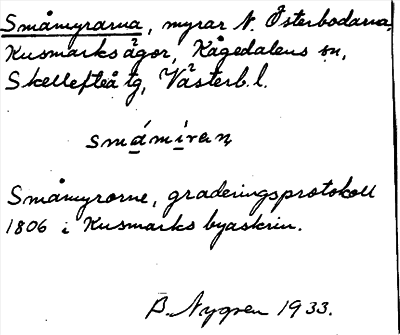 Småmyrarna, myrar N. Österbodarna,
Kusmarks ägor, Kågedalens sn,
Skellefteå tg, Västerb. l.
småmíran
Småmyrorne, graderingsprotokoll
1806 i Kusmarks byaskrin.
B. Nygren 1933.